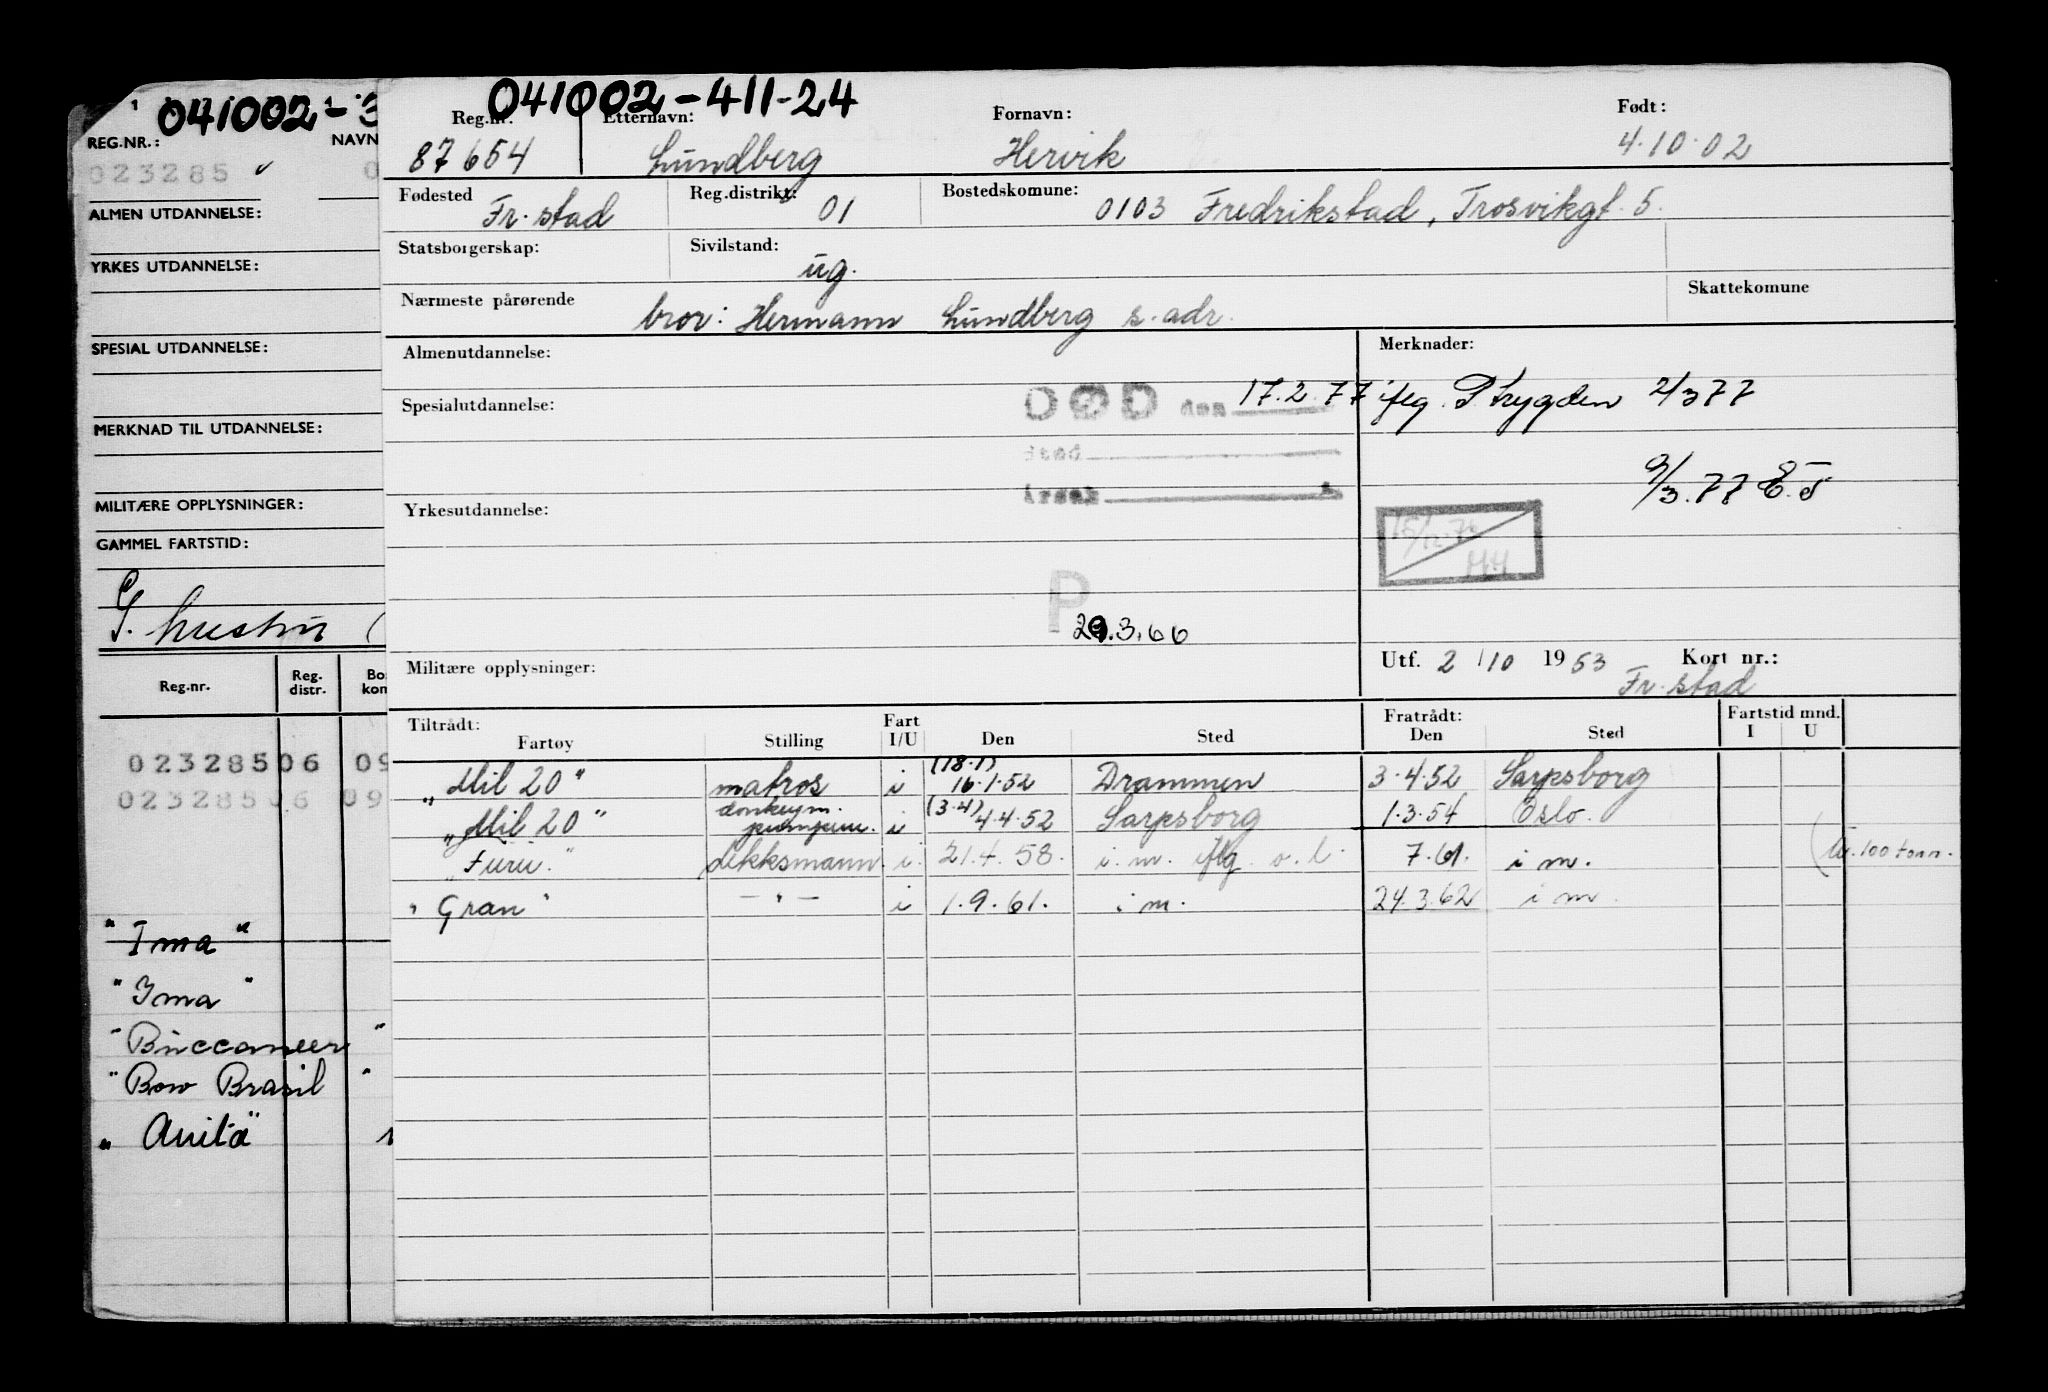 041002-3
REG.NR.: NAVN
023285
ALMEN UTDANNELSE:
YRKES UTDANNELSE:
SPESIAL UTDANNELSE:
MERKNAD TIL UTDANNELSE:
MILITÆRE OPPLYSNINGER:
GAMMEL FARTSTID:
Reg.nr. Reg. distr. Bo kom
023285 06 09
023285 06 09
"Ima"
"Ima"
"Buccaneer"
"Bow Brasil"
"Anita"
041002-411-24
Reg.nr. Etternavn: Fornavn: Født:
87654 Lundberg Hervik 4.10.02
Fødested Reg.distrikt: Bostedskomune:
Fr.stad 01 0103 Fredrikstad, Trosvikgt. 5.
Statsborgerskap: Sivilstand:
ug.
Nærmeste pårørende Skattekomune
bror: Hermann Lundberg s. adr.
Almenutdannelse: Merknader:
DØD den 17.2.77 iflg. P. trygden 2/3 77
Spesialutdannelse:
Sted
9/3.77
Årsak
Yrkesutdannelse:
15/12.76
HH
P
29.3.66
Militære opplysninger: Utf. 2/10 1953 Kort nr.:
Fr.stad
Tiltrådt: Fart Fratrådt: Fartstid mnd.
Fartøy Stilling I/U Den Sted Den Sted I U
"Mil 20" matros i (18.1) 16.1.52 Drammen 3.4.52 Sarpsborg
"Mil 20" donkeym. i (3.4) 4.4.52 Sarpsborg 1.3.54 Oslo.
"Furu." dekksmann. i. 21.4.58. i.m. iflg. o.l. 7.61. i m.
"Gran" —"— i 1.9.61. i m. 24.3.62 i m.